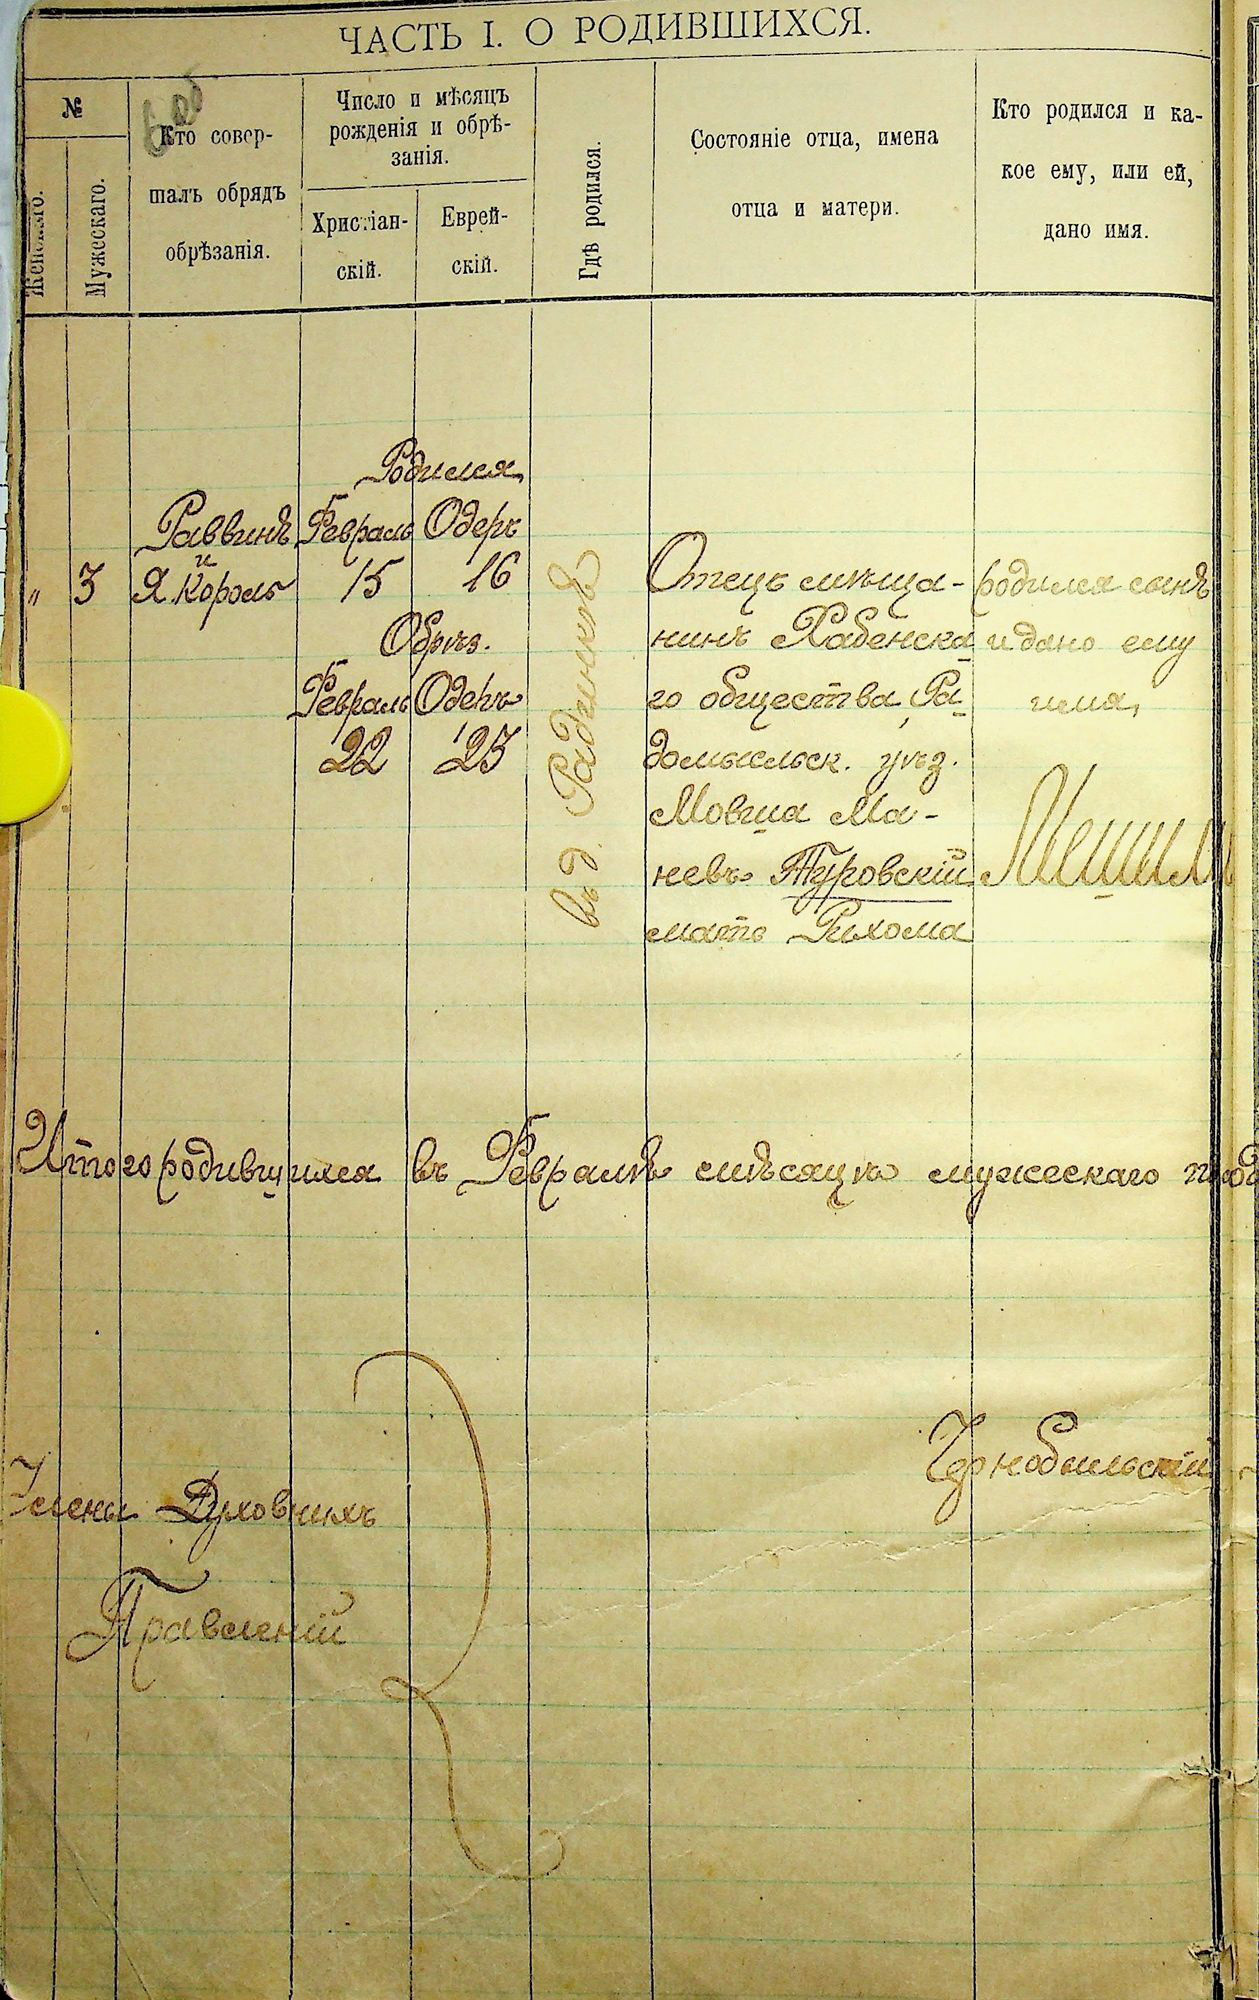 ЧАСТЬ I. О РОДИВШИХСЯ.
№
Женскаго.
Мужескаго.
Кто совер-
шалъ обрядъ
обрѣзанія.
Число и мѣсяцъ
рожденія и обрѣ-
занія.
Христіан-
скій.
Еврей-
скій.
Гдѣ родился.
Состояніе отца, имена
отца и матери.
Кто родился и ка-
кое ему, или ей,
дано имя.
"
3
Раввинъ
и
Я. Король
Родился
Февраль Одеръ
15 16
Обрѣз.
Февраль Одеръ
22 23
въ д. Радинкѣ
Отецъ мѣща-
нинъ Хабенска
го общества Ра-
домысльск. уѣз.
Мовша Ма-
невъ Туровскій
мать Рыхома
родился сынъ
и дано ему
имя,
Мешилъ
Итого родившихся въ Февралѣ мѣсяцѣ мужескаго
Члены Духовныхъ
Правленій
Чернобыльскій